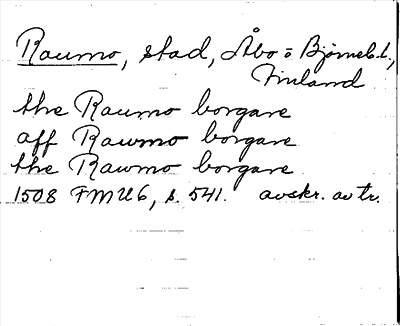 Raumo, stad, Åbo o Björneb.l.,
Finland
the Raumo borgare
aff Rawmo borgare
the Rawmo borgare
1508 FMU6, s. 541. avskr. av tr.